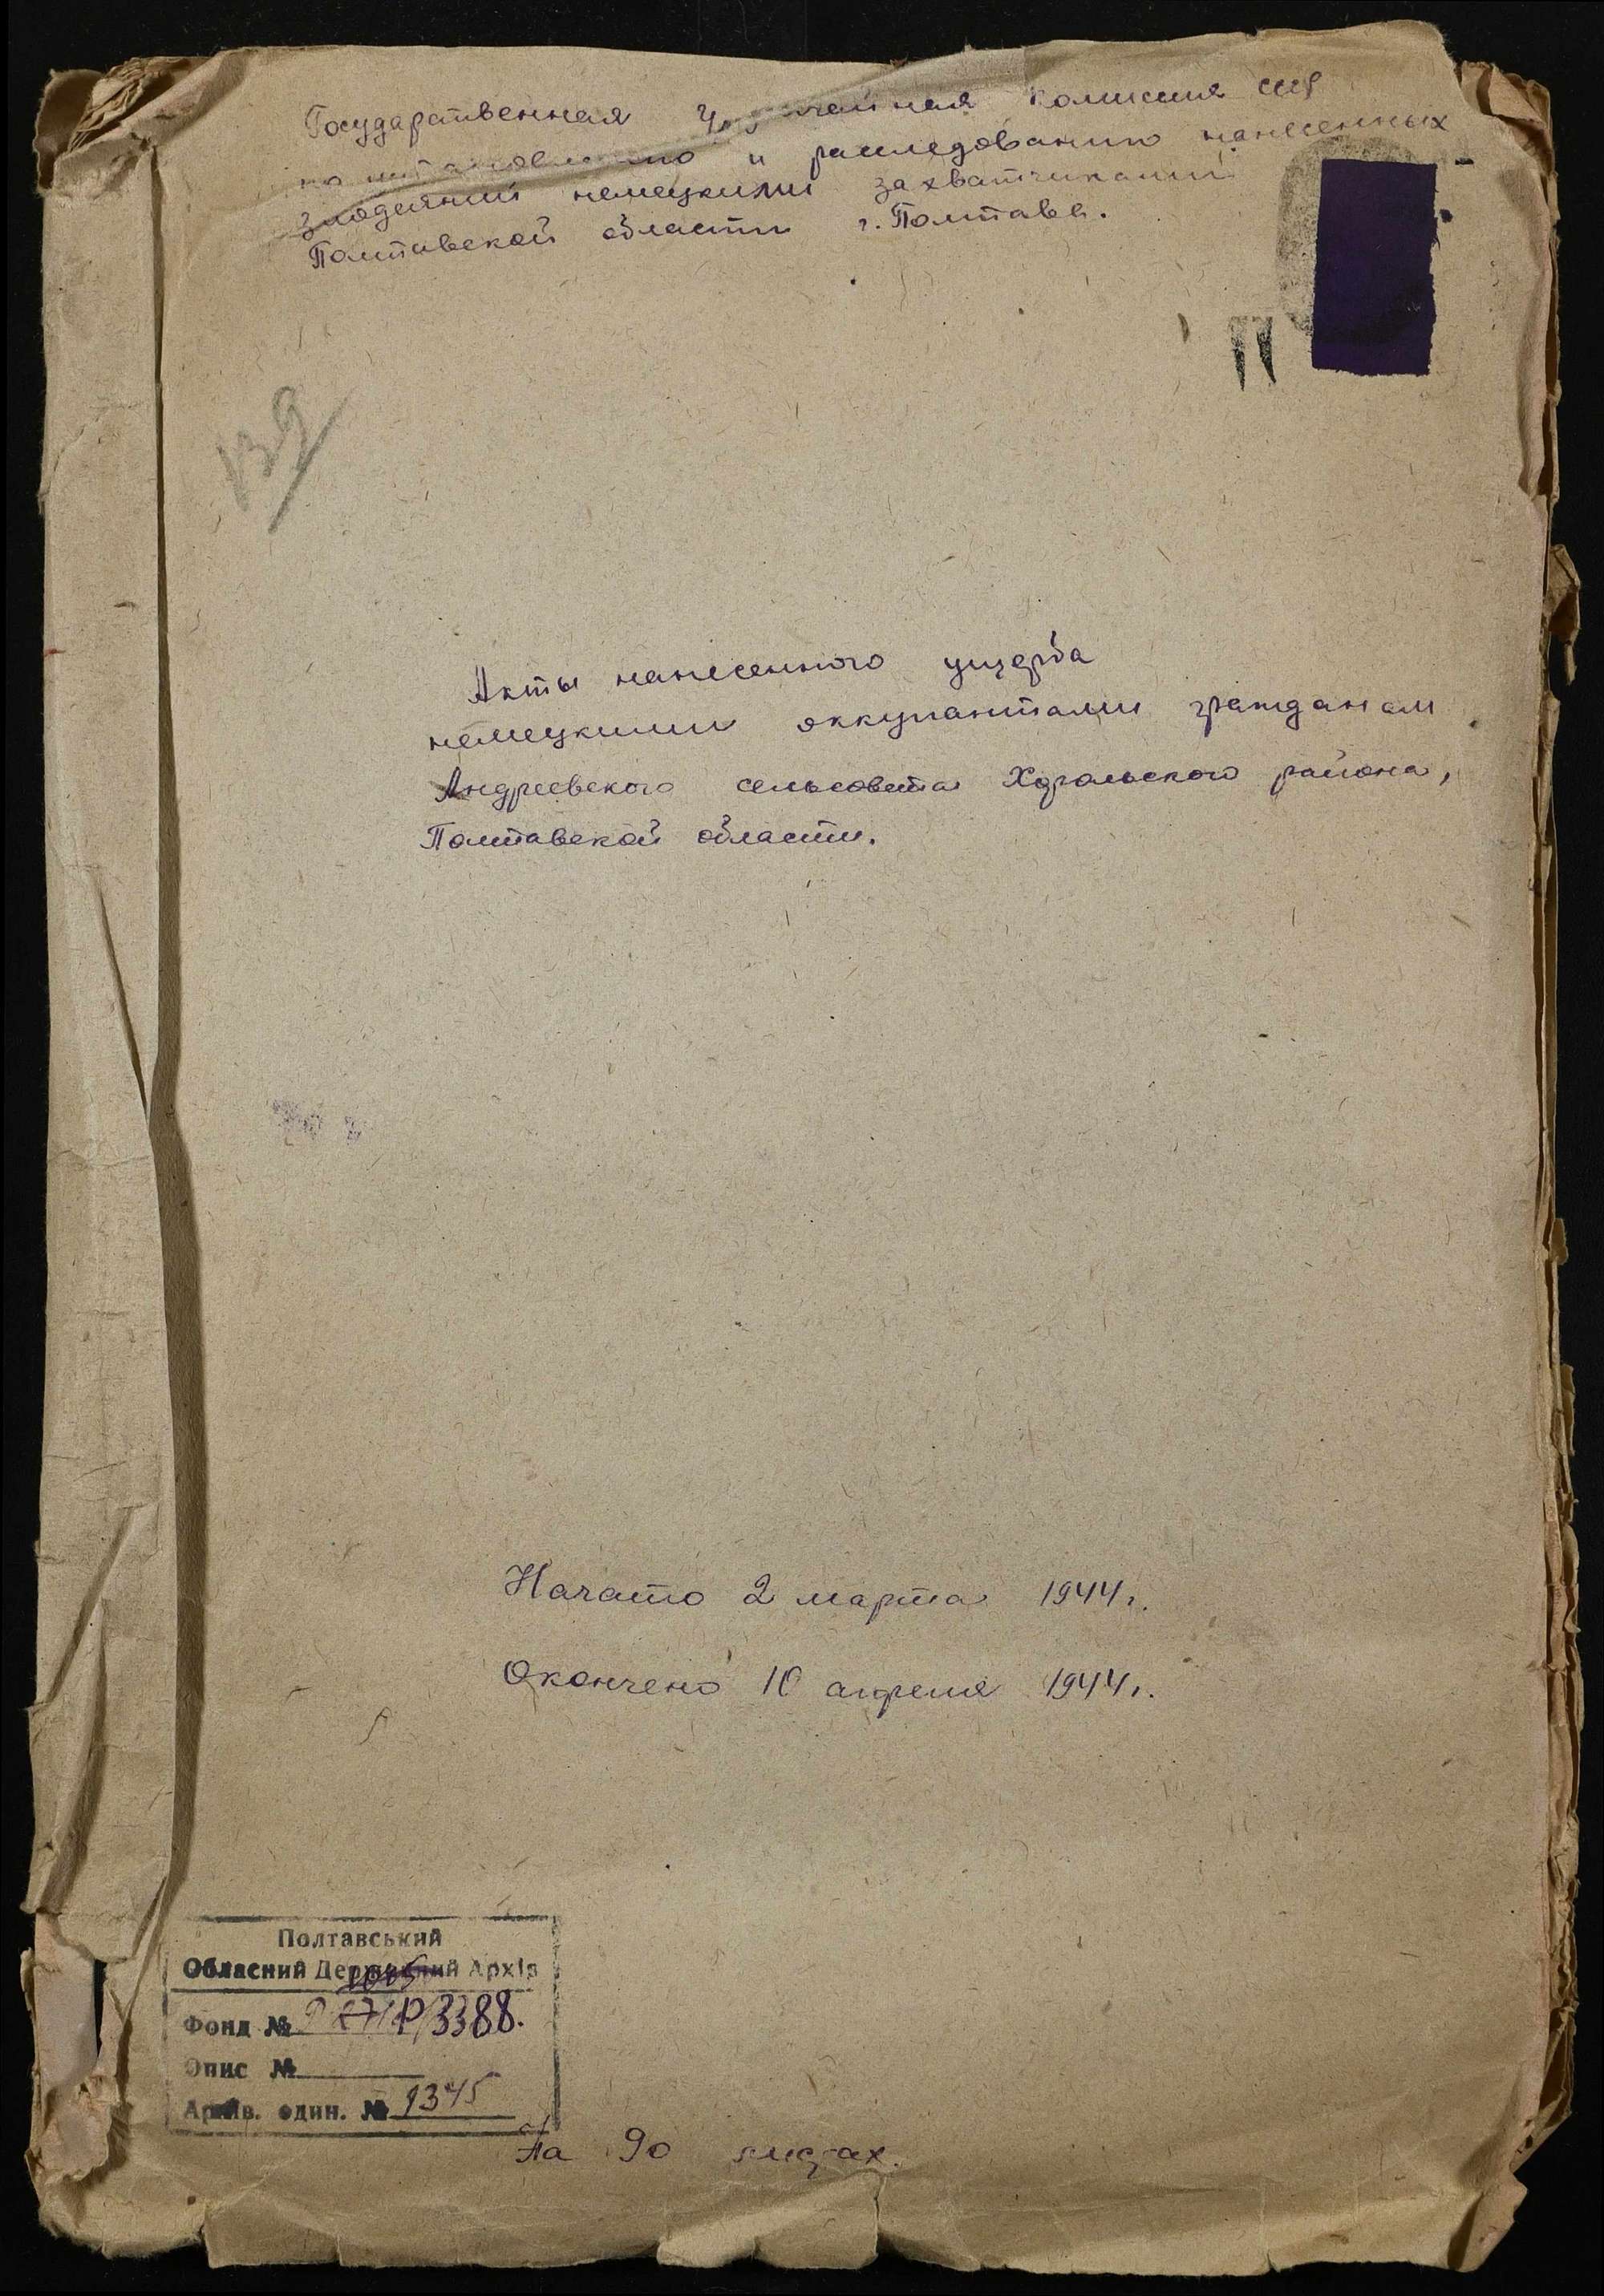 Государственная Чрезвычайная Комиссия СССР
по установлению и расследованию нанесенных
злодеяний немецкими захватчиками
Полтавской области г. Полтава.
139
Акты нанесенного ущерба
немецкими оккупантами гражданам
Андреевского сельсовета Хорольского района,
Полтавской области.
Начато 2 марта 1944 г.
Окончено 10 апреля 1944 г.
Полтавський
Обласний Державний Архів
Фонд № Р/3388.
Опис №
Архів. один. № 1345
На 90 листах.